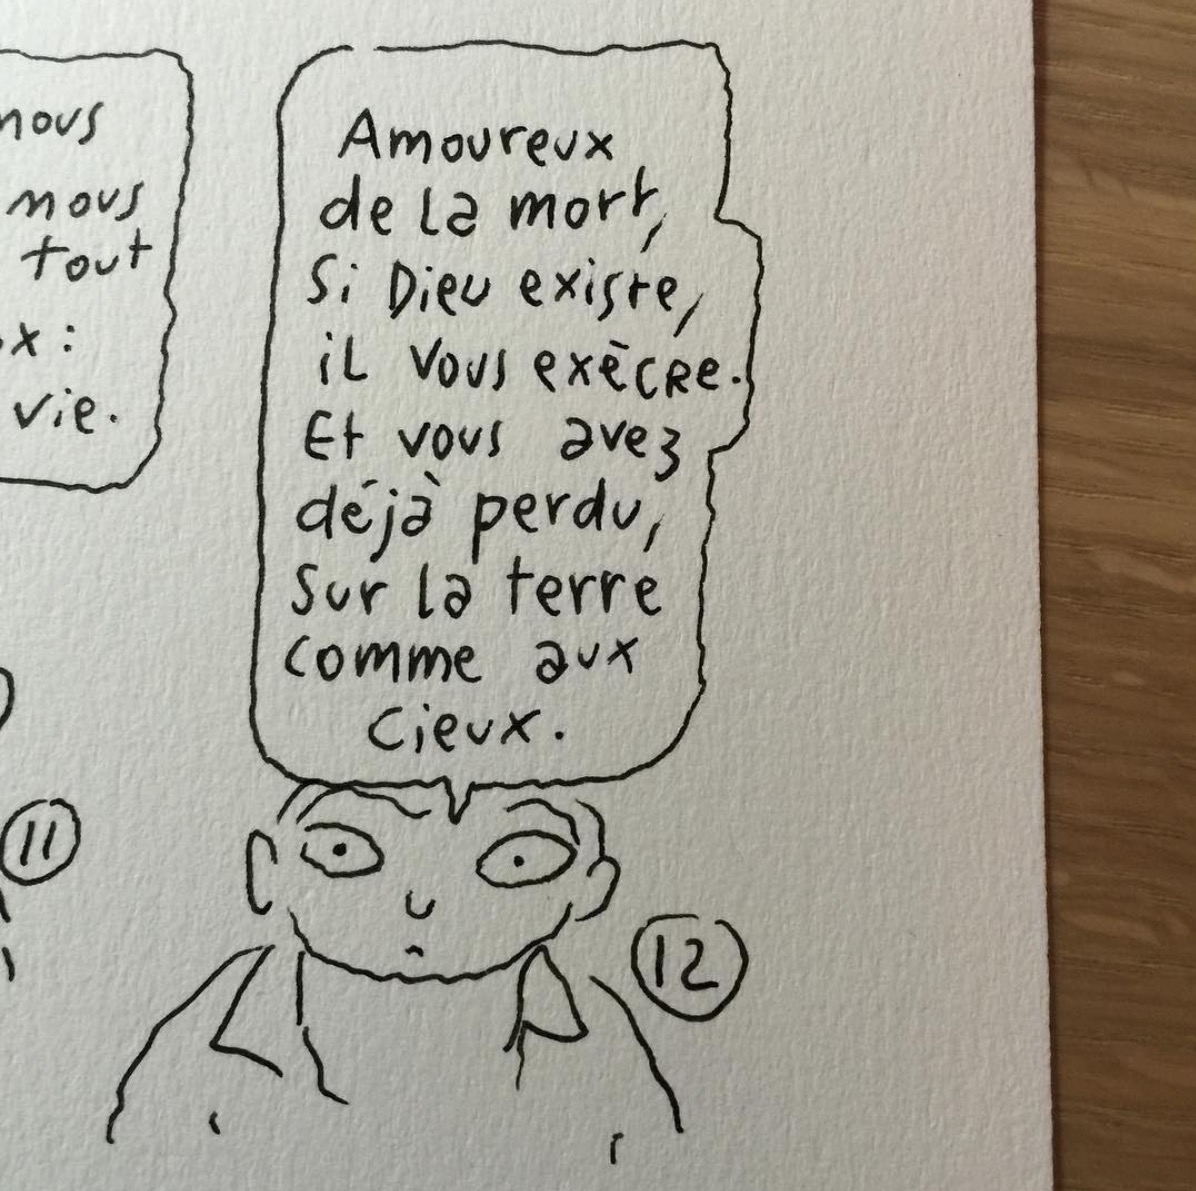 nous
nous
tout
x :
vie.
11
Amoureux
de la mort,
Si Dieu existe,
il vous exècre.
Et vous avez
déjà perdu,
sur la terre
comme aux
cieux.
12